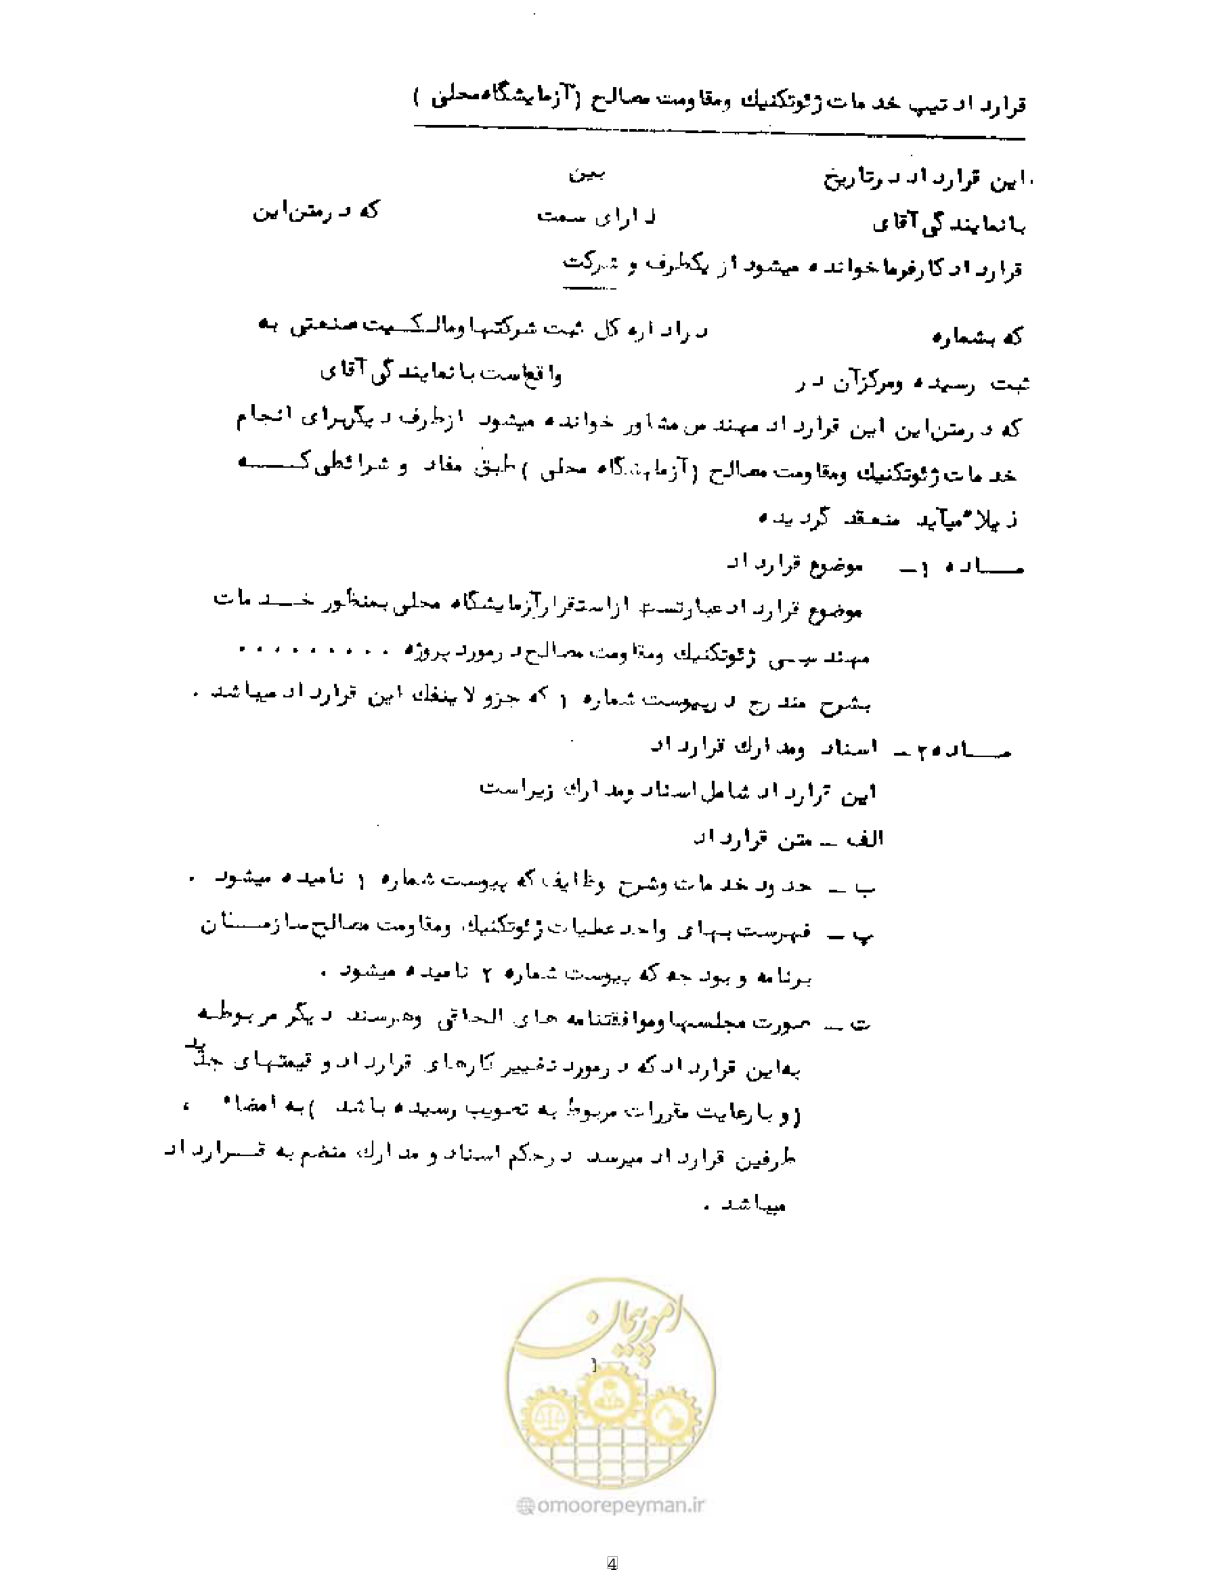 قرارداد تیپ خدمات ژئوتکنیک ومقاومت مصالح (آزمایشگاه محلی )
این قرارداد درتاریخ بین
بانمایندگی آقای دارای سمت که درمتن این
قرارداد کارفرما خوانده میشود از یکطرف و شرکت
که بشماره دراداره کل ثبت شرکتها ومالکیت صنعتی به
ثبت رسیده ومرکزآن در واقع است بانمایندگی آقای
که درمتن این این قرارداد مهندس مشاور خوانده میشود ازطرف دیگربرای انجام
خدمات ژئوتکنیک ومقاومت مصالح (آزمایشگاه محلی )طبق مفاد و شرائطی کــه
ذیلا" میآید منعقد گردیده
مـــاده ۱ـ موضوع قرارداد
موضوع قرارداد عبارتست ازاستقرارآزمایشگاه محلی بمنظور خــدمات
مهندسی ژئوتکنیک ومقاومت مصالح درمورد پروژه . . . . . . . . .
بشرح مندرج درپیوست شماره ۱ که جزو لاینفک این قرارداد میباشد .
مـــاده۲ـ اسناد ومدارک قرارداد
این قرارداد شامل اسناد ومدارک زیراست
الف ـ متن قرارداد
ب ـ حدود خدمات وشرح وظایف که پیوست شماره ۱ نامیده میشود .
پ ـ فهرست بهای واحد عملیات ژئوتکنیک ومقاومت مصالح سازمــان
برنامه و بودجه که پیوست شماره ۲ نامیده میشود .
ت ـ صورت مجلسها وموافقتنامه های الحاقی وهرسند دیگر مربوطــه
به این قرارداد که درمورد تغییر کارهای قرارداد و قیمتهای جدید
(و بارعایت مقررات مربوط به تصویب رسیده باشد )به امضاء ،
طرفین قرارداد میرسد درحکم اسناد و مدارک منضم به قــرارداد
میباشد .
امور پیمان
۱
@omoorepeyman.ir
4